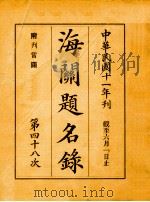 中華民國十一年刊
截至六月一日止
海關題名錄
附刊常關
第四十八次